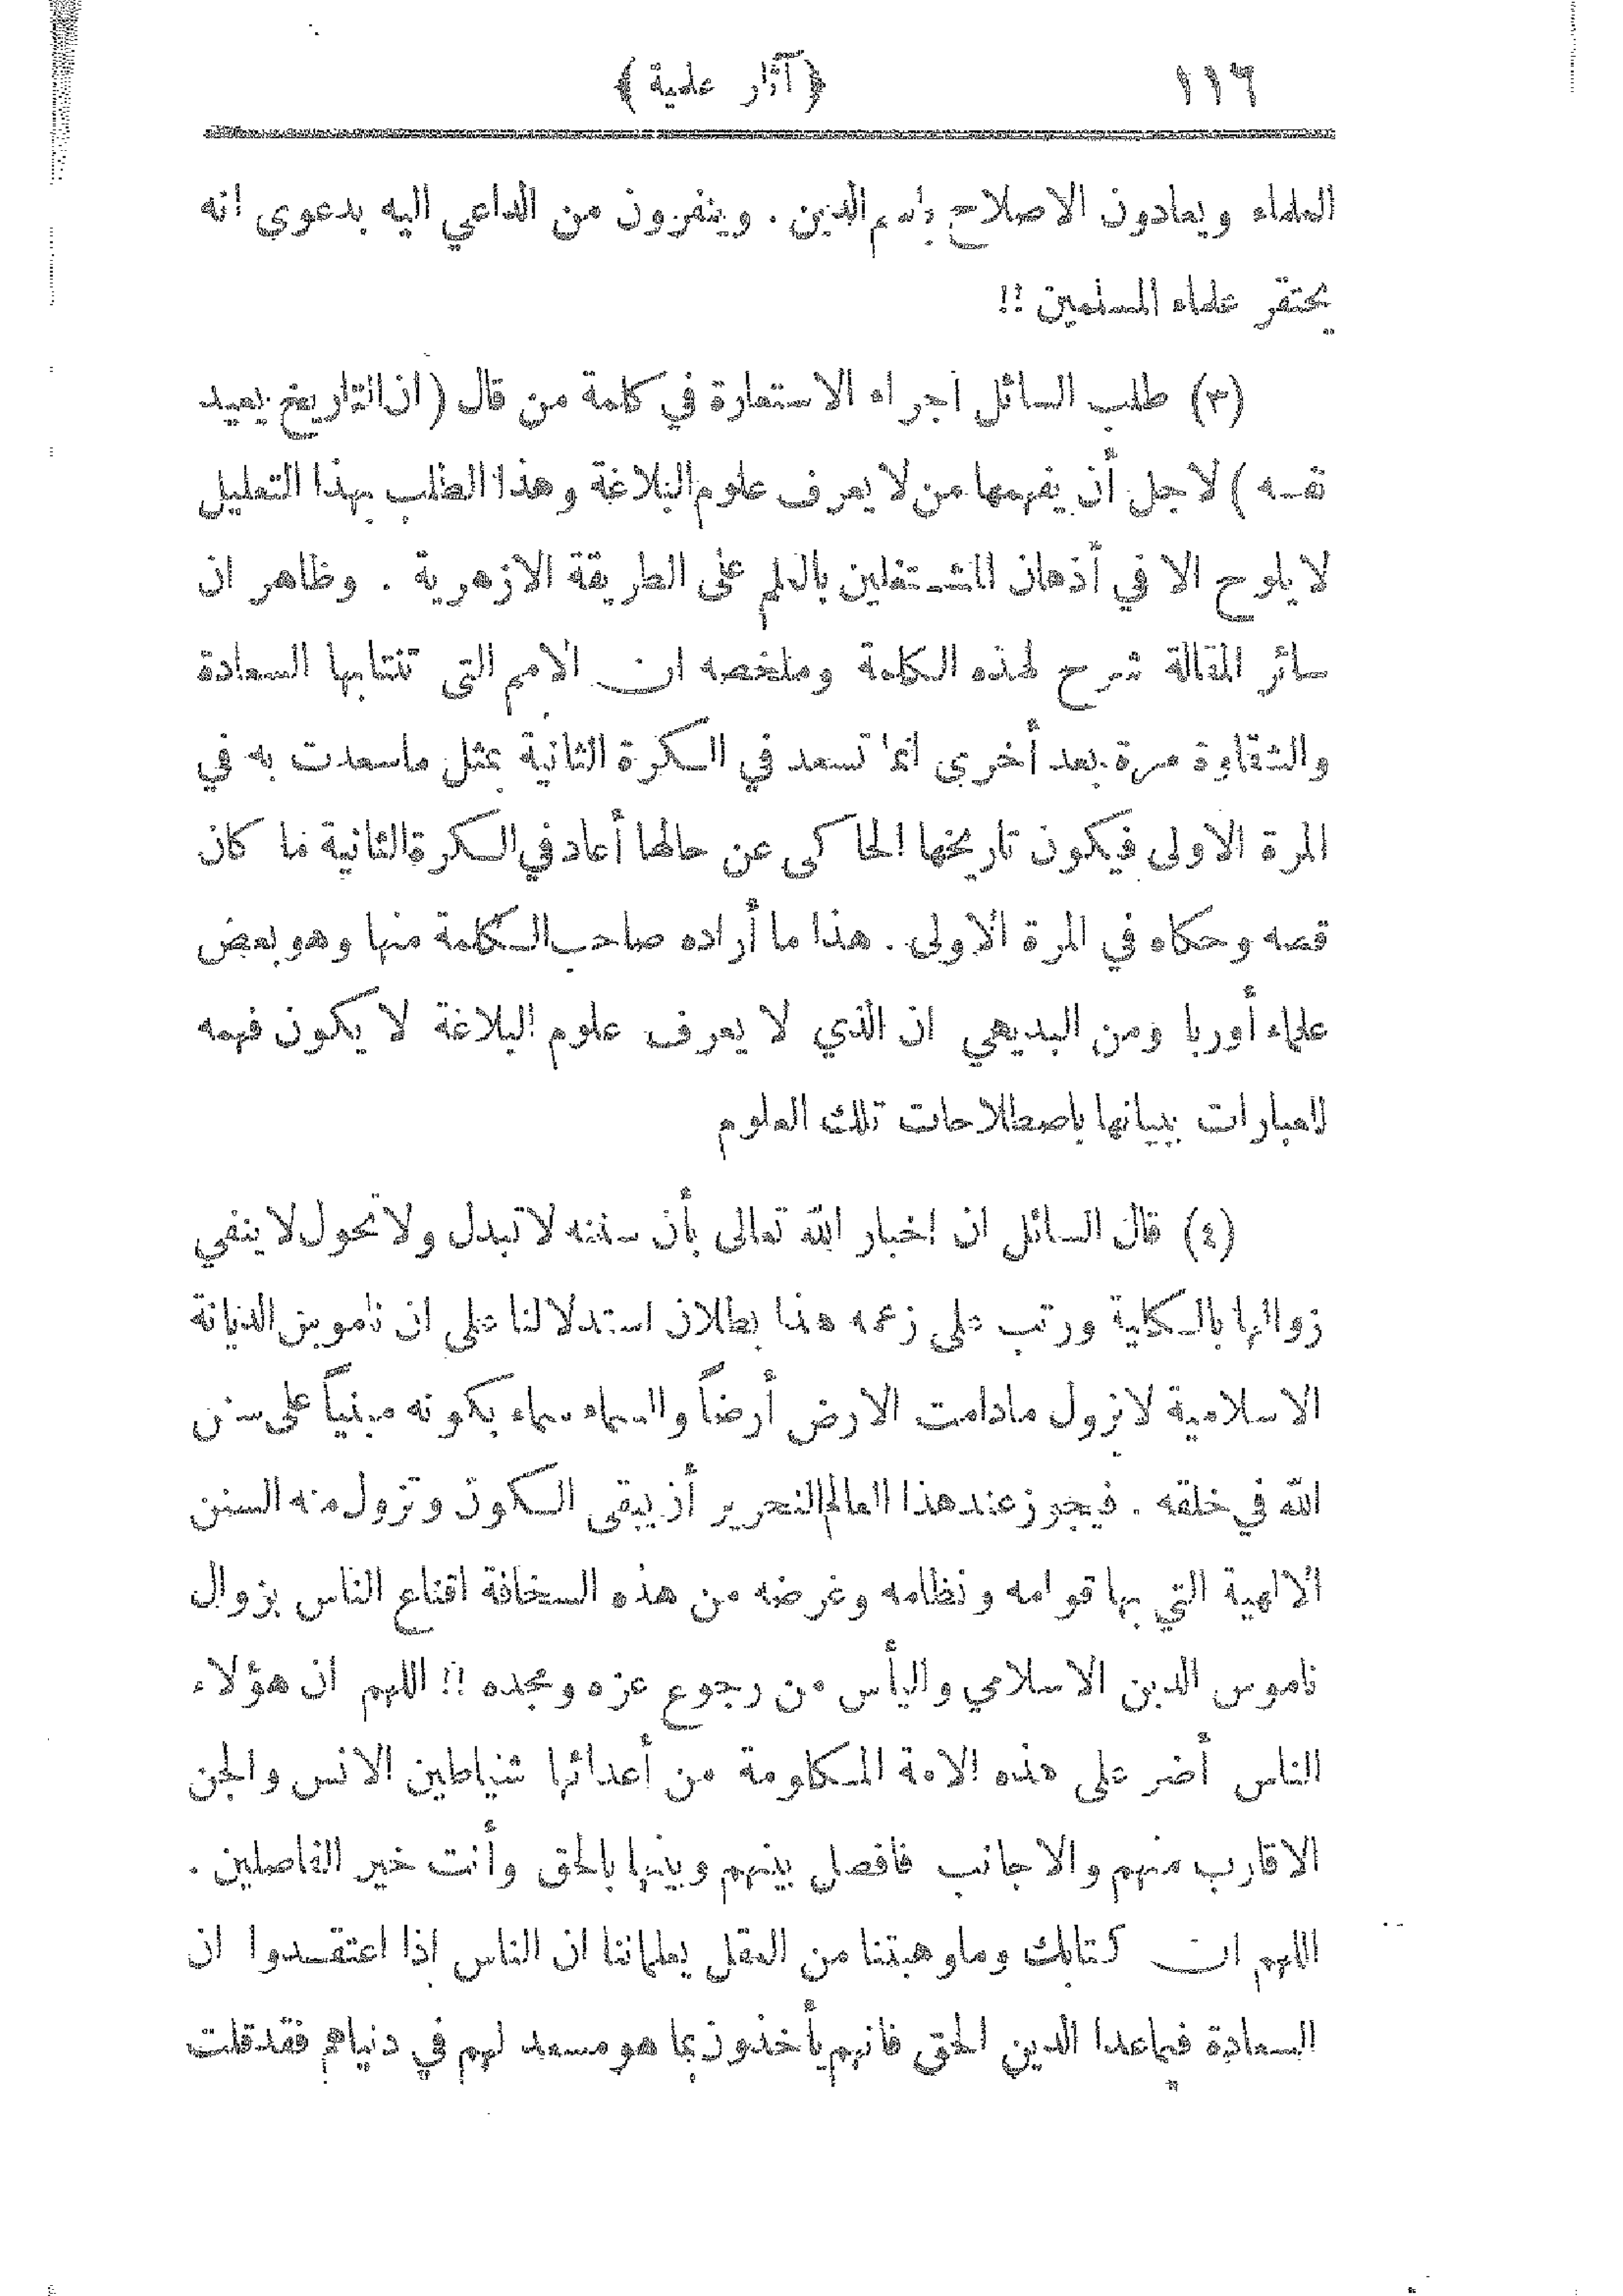 ١١٦ ﴿ آثار علمية ﴾
العلماء ويعادون الاصلاح باسم الدين . وينفرون من الداعي اليه بدعوى انه
يحتقر علماء المسلمين !!
(٣) طلب السائل اجراء الاستعارة في كلمة من قال ( ان التاريخ يعيد
نفسه ) لاجل أن يفهمها من لا يعرف علوم البلاغة وهذا الطلب بهذا التعليل
لا يلوح الا في أذهان المشتغلين بالعلم على الطريقة الازهرية . وظاهر ان
سائر المقالة شرح لهذه الكلمة وملخصه ان الامم التي تنتابها السعادة
والشقاوة مرة بعد أخرى انما تسعد في الكرة الثانية بمثل ماسعدت به في
المرة الاولى فيكون تاريخها الحاكى عن حالها أعاد في الكرة الثانية ما كان
قصه وحكاه في المرة الاولى . هذا ما أراده صاحب الكلمة منها وهو بعض
علماء أوربا ومن البديهي ان الذي لا يعرف علوم البلاغة لا يكون فهمه
للعبارات ببيانها باصطلاحات تلك العلوم
(٤) قال السائل ان اخبار الله تعالى بأن سننه لا تبدل ولا تحول لا ينفي
زوالها بالكلية ورتب على زعمه هذا بطلان استدلالنا على ان ناموس الديانة
الاسلامية لا يزول مادامت الارض أرضاً والسماء سماء بكونه مبنياً على سنن
الله في خلقه . فيجوز عند هذا العالم النحرير أن يبقى الكون وتزول منه السنن
الالهية التي بها قوامه ونظامه وغرضه من هذه السخافة اقناع الناس بزوال
ناموس الدين الاسلامي واليأس من رجوع عزه ومجده !! اللهم ان هؤلاء
الناس أضر على هذه الامة المكلومة من أعدائها شياطين الانس والجن
الاقارب منهم والاجانب فافصل بينهم وبينها بالحق وأنت خير الفاصلين .
اللهم ان كتابك وماوهبتنا من العقل يعلماننا ان الناس اذا اعتقدوا ان
السعادة فيماعدا الدين الحق فانهم يأخذون بما هو مسعد لهم في دنياهم فقد قلت